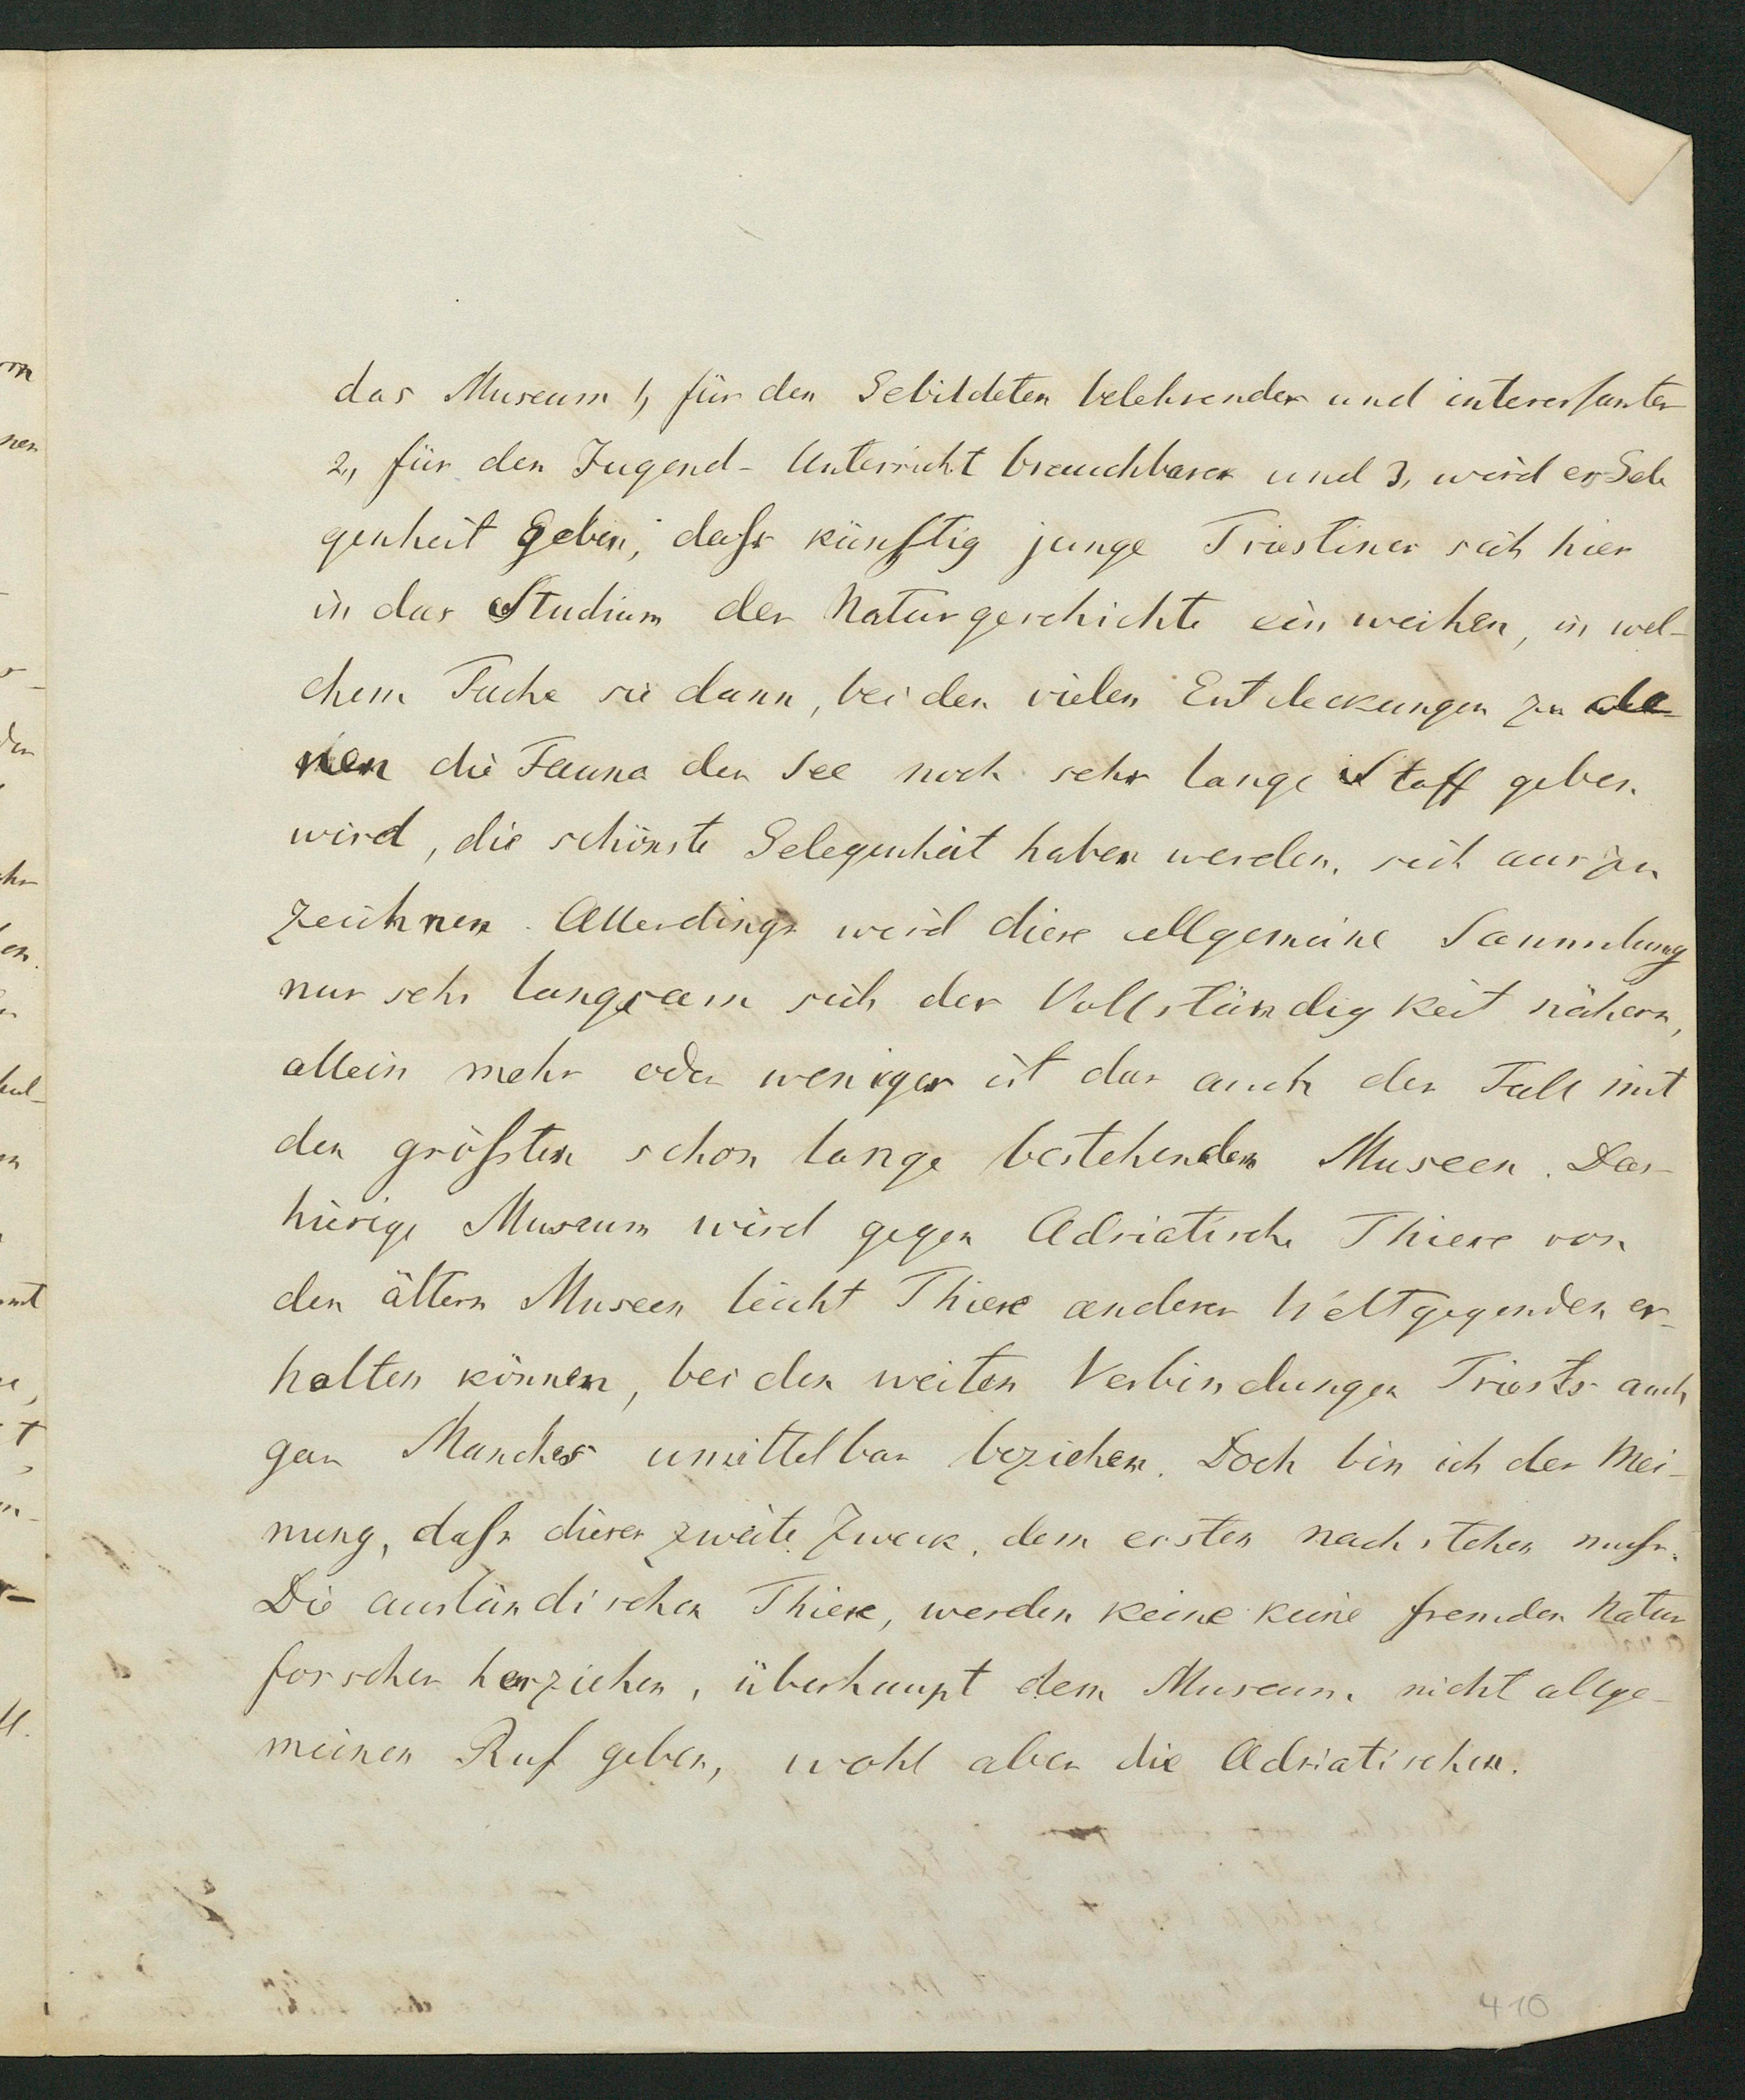 das Museum 1, für den Gebildeten belehrender und interessanter
2., für den Jugend-Unterricht brauchbarer und 3, wird er Gele
genheit geben, dass künftig junge Triestiner sich hier
in das Studium der Naturgeschichte ein weihen, in wel-
chem Fache sie dann, bei den vielen Entdeckungen zu de-
nen die Fauna der See noch sehr lange Stoff geben
wird, die schönste Gelegenheit haben werden, sich aus zu
zeichnen. Allerdings wird diese allgemeine Sammlung
nur sehr langsam sich der Vollständigkeit nähern,
allein mehr oder weniger ist das auch der Fall mit
den größten schon lange bestehenden Museen. Das
hiesige Museum wird gegen Adriatische Thiere von
den ältern Museen leicht Thiere anderer Weltgegenden er-
halten können, bei den weiten Verbindungen Triests auch
gar Manches unmittelbar beziehen. Doch bin ich der Mei-
nung, dass dieser zweite Zweck, dem ersten nachstehen muss.
Die ausländischen Thiere, werden keine keine fremden Natur
forscher herziehen, überhaupt dem Museum nicht allge-
meinen Ruf geben, wohl aber die Adriatischen.
410